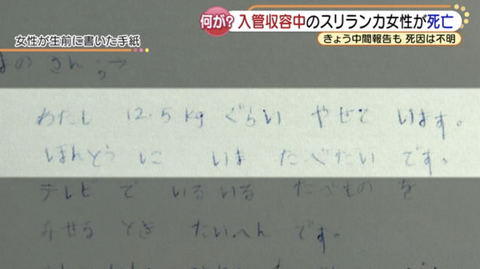 何が？入管収容中のスリランカ女性が死亡
きょう中間報告も 死因は不明
女性が生前に書いた手紙
さん
わたし 12.5kg ぐらい やせて います。
ほんとうに いま たべたい です。
テレビ で いるいる たべもの を
みせる とき たいへん です。